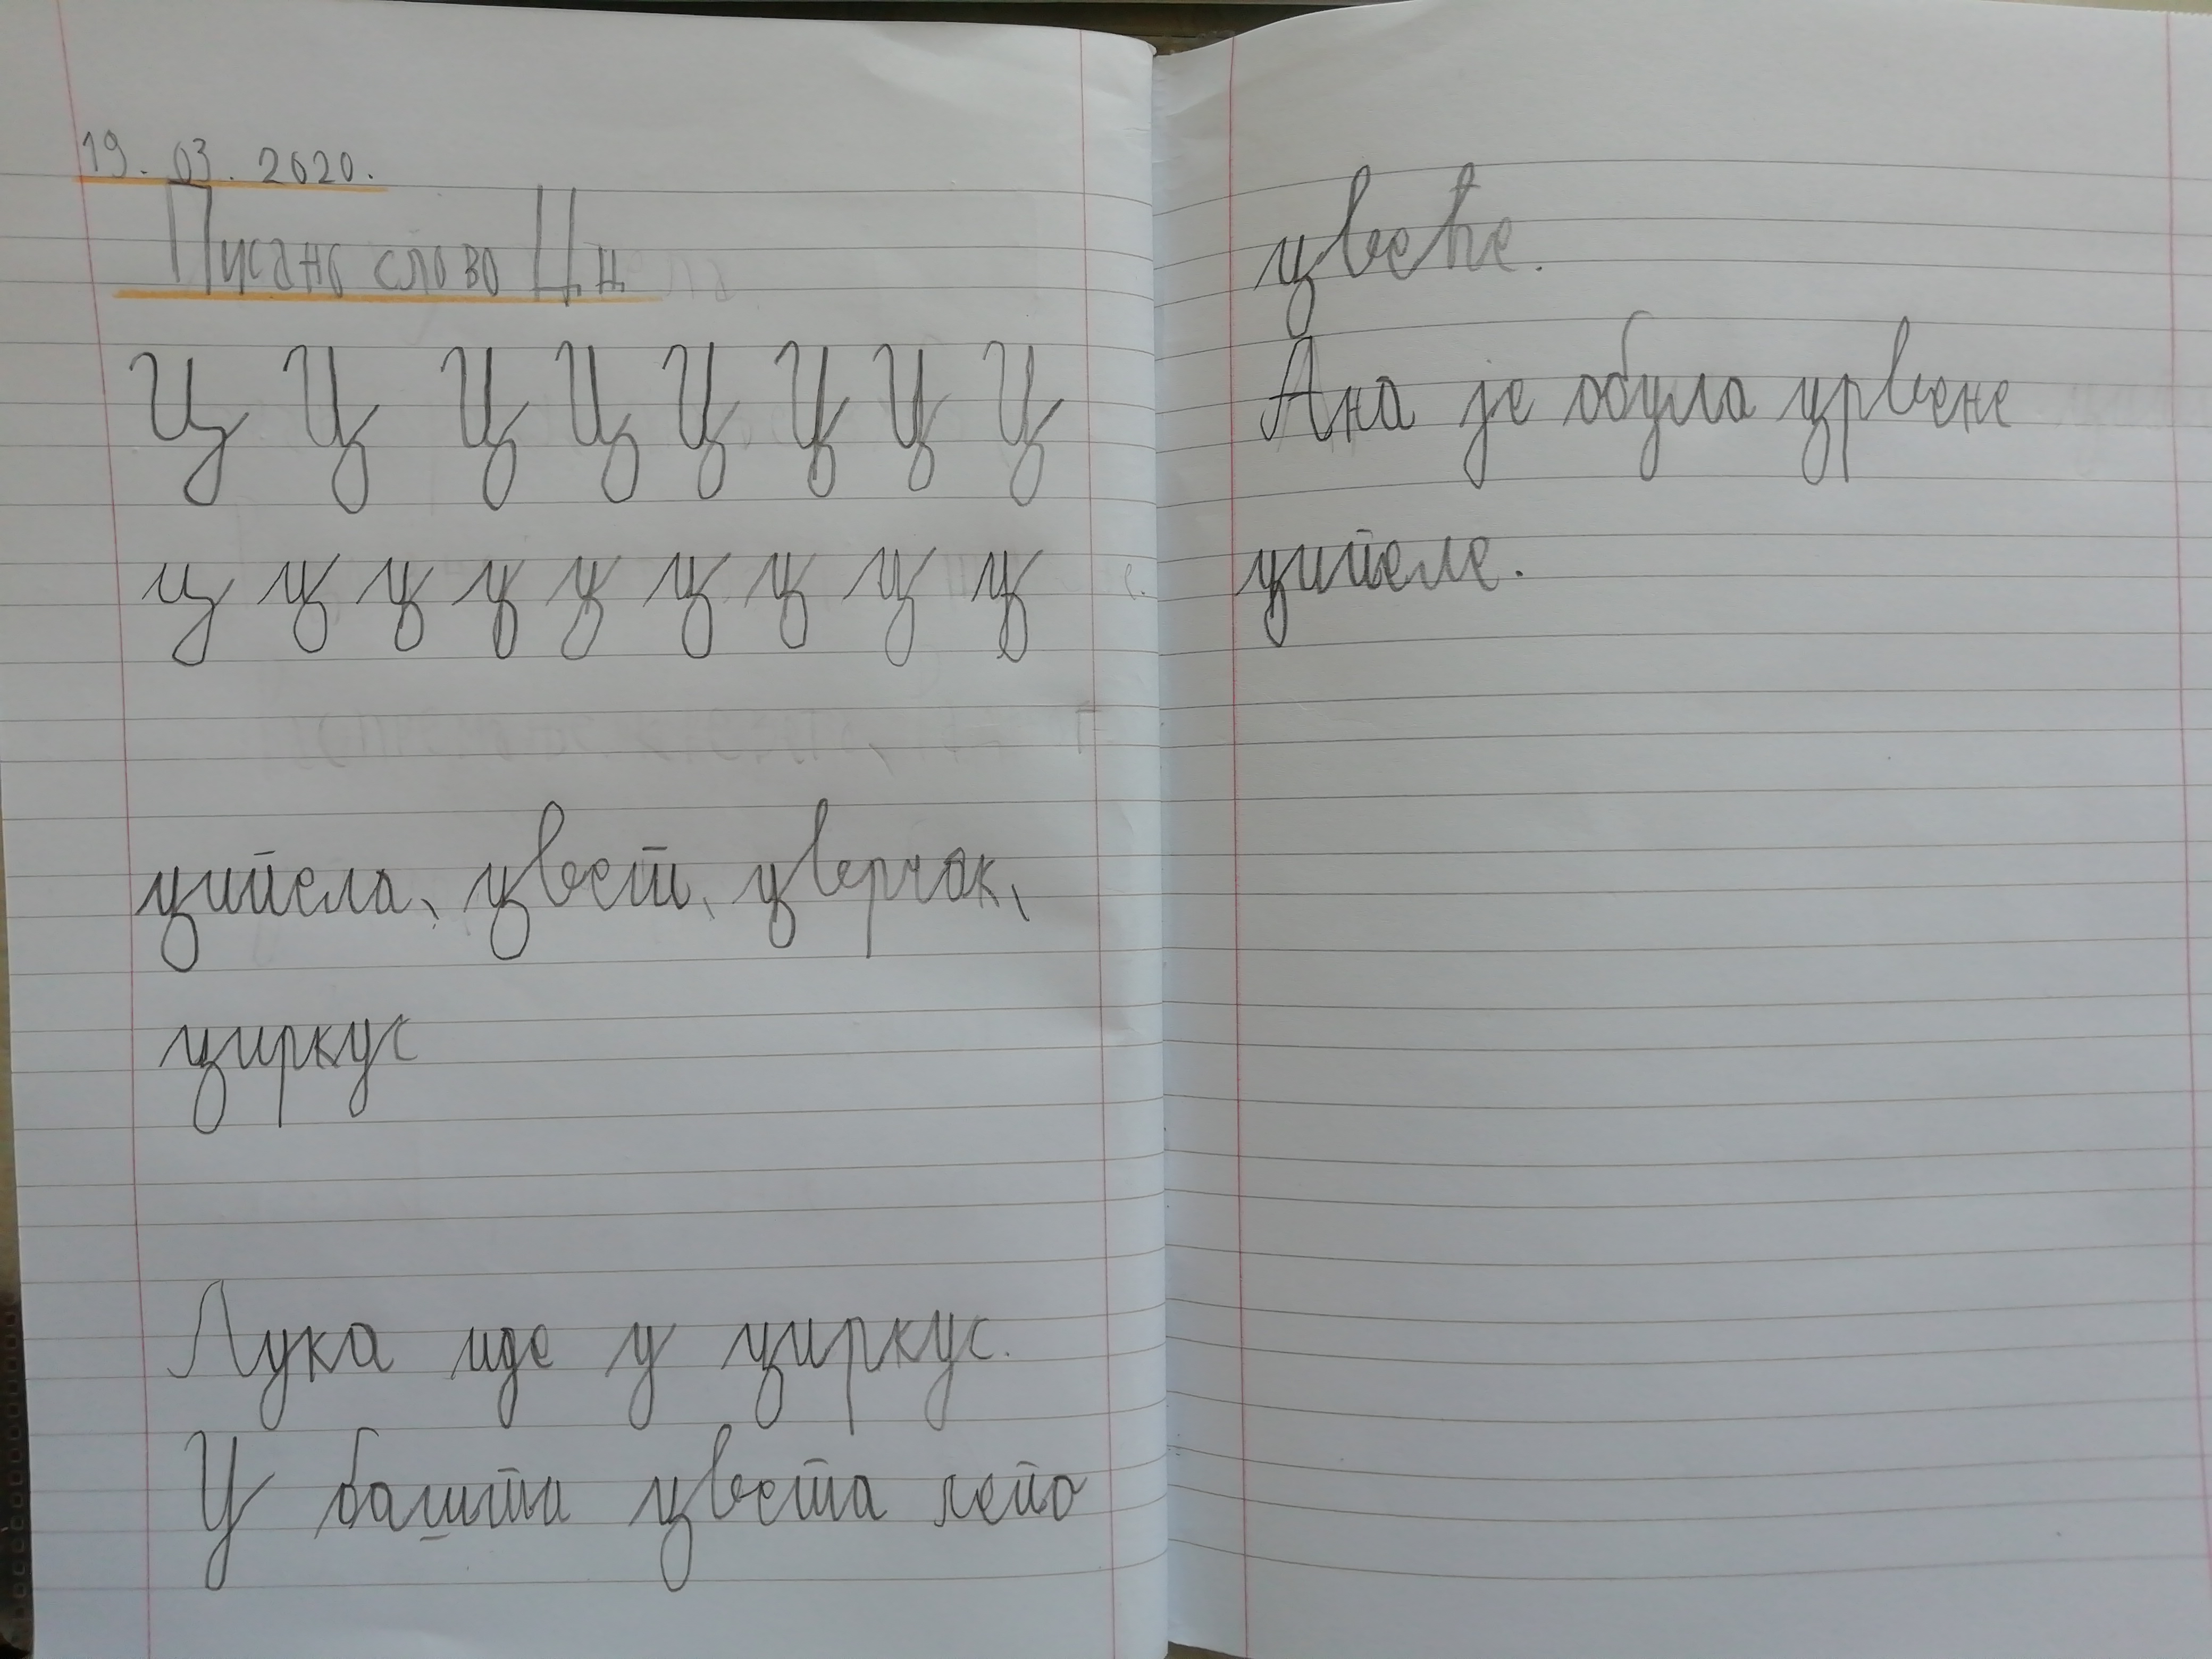 19. 03. 2020.
Писано слово Ц ц
Ц Ц Ц Ц Ц Ц Ц Ц
ц ц ц ц ц ц ц ц ц
ципела, цвет, цверчак,
циркус
Лука иде у циркус.
У башти цвета лепо
цвеће.
Ана је обула црвене
ципеле.